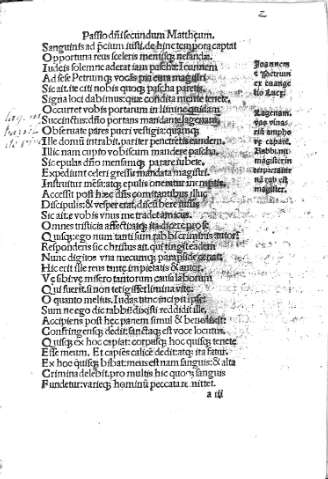 2
Passio dñi secundum Mattheum.
Sanguinis ad precium iusti. de hinc tempora captat
Opportuna reus sceleris mentisq; nefandæ.
Iudeis solemne aderat iam pascha: Ioannem
Ad sese Petrumq; vocās pia cura magistri
Sic ait. ite citi nobis quoq; pascha paretis.
Signa loci dabimus: quæ condita mente tenete,
Occurret vobis portans in limine quidam
Succinctus: dño portans mandante lagenam,
Obseruate pares pueri vestigia: quamq;
Ille domū intrabit. pariter penetretis eandem.
Illic nam cupio vobiscum mandere pascha.
Sic epulas dño mensamq; parare iubete.
Expediunt celeri gressu mandata magistri.
Instruitur mēsa: atq; epulis oneratur
Accessit post hæc dñs comitantibus illuc
Discipulis: & vesper erat. discūbere iussis
Sic ait. e vobis vnus me tradet amicus.
Omnes tristicia affecti: atq; ita dicere prose
Quisq;. ego num tanti sum rabbi criminis autor?
Respondens sic christus ait. qui tinget eadem
Nunc digitos vna mecumq; parapside cœnat,
Hic erit ille reus tantę impietatis & autor.
Ve sibi væ misero tantorum causa laborum
Qui fuerit. si non tetigisset limina vitę:
O quanto melius. Iudas tunc incipit ipse:
Sum ne ego dic rabbi: dixisti reddidit ille,
Accipiens post hęc panem simul & benedixit:
Confringensq; dedit. sanctaq; est voce locutus.
Quisq; ex hoc capiat: corpusq; hoc quisq; tenete
Esse meum. Et capiēs calicē dedit: atq; ita fatur.
Ex hoc quisq; bibat: meus est nam sanguis: & alta
Crimina delebit. pro multis hic quoq; sanguis
Fundetur: varieq; hominū peccata remittet.
a iii
Ioannem
& Petrum
ex euange
lio Lucę.
Lagenam.